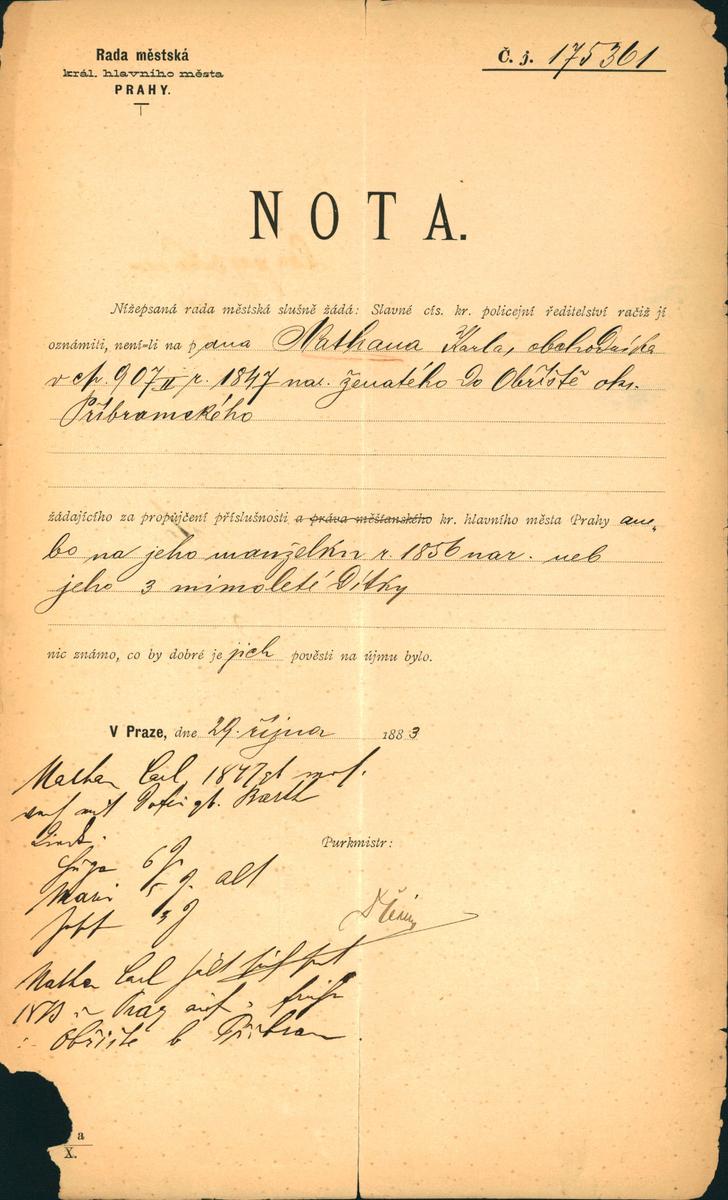 Rada městská
král. hlavního města
PRAHY.
Č. j. 175361
NOTA.
Nížepsaná rada městská slušně žádá: Slavné cís. kr. policejní ředitelství račiž jí
oznámiti, není-li na pana Nathana Karla, obchodníka
v čp. 907 II r. 1847 nar. ženatého do Obřiště okr.
Příbramského
žádajícího za propůjčení příslušnosti a práva měšťanského kr. hlavního města Prahy ane-
bo na jeho manželku r. 1856 nar. neb
jeho 3 mimoletí dítky
nic známo, co by dobré je jich pověsti na újmu bylo.
V Praze, dne 29. října 1883
Nathan Carl 1847 mos.
Purkmistr:
6
5 alt
3
Nathan Carl
1873 Prag
Obřiště b Přibram.
a
X.